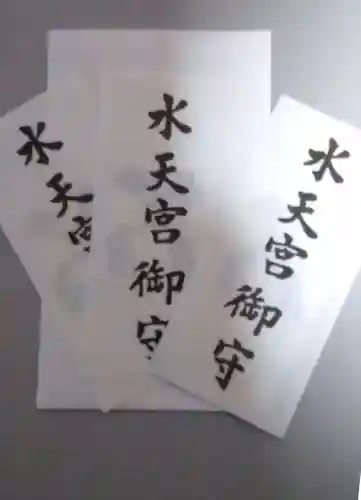 水天宮
水天宮御守
水天宮御守